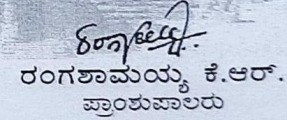 ರಂಗಶಾಮಯ್ಯ ಕೆ.ಆರ್.
ಪ್ರಾಂಶುಪಾಲರು